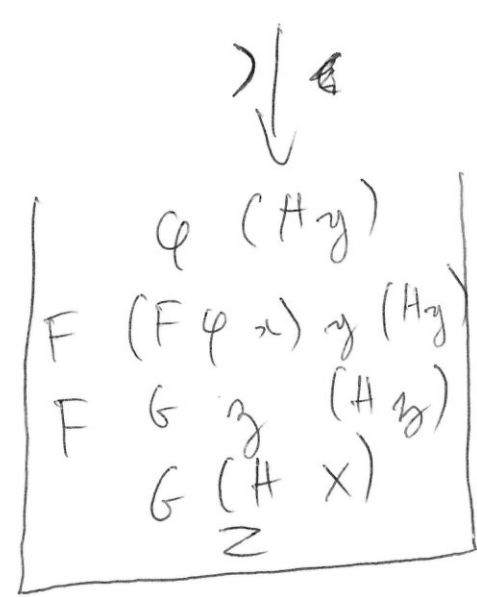 φ (H y)
F (F φ x) y (H y)
F G z (H z)
G (H X)
Z